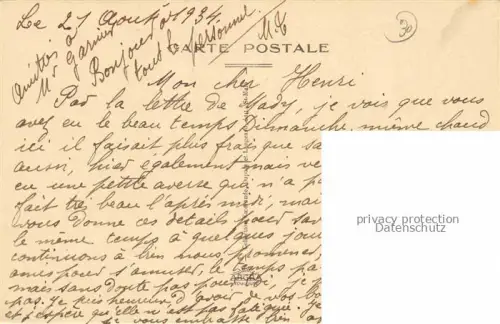 Le 27 Août 1934.
Amitiés à
Mr Garnier
Bonjour à
tout le personnel
M.E
30
CARTE POSTALE
Mon cher Henri
Par la lettre de Mady, je vois que vous
avez eu le beau temps Dimanche, même chaud
ici il faisait plus frais que sa
aussi, hier également mais ve
eu une petite averse qui n'a p
fait très beau l'après midi, mai
vous donne ces détails pour sav
le même temps à quelques jou
continuons à bien nous promener,
amies pour s'amuser, le temps pa
mais sans doute pas pour toi, je
pas. Je suis heureuse d'avoir de vos bo
et j'espère qu'elle n'est pas fatiguée. Je
vous embrasse bien
privacy protection
Datenschutz